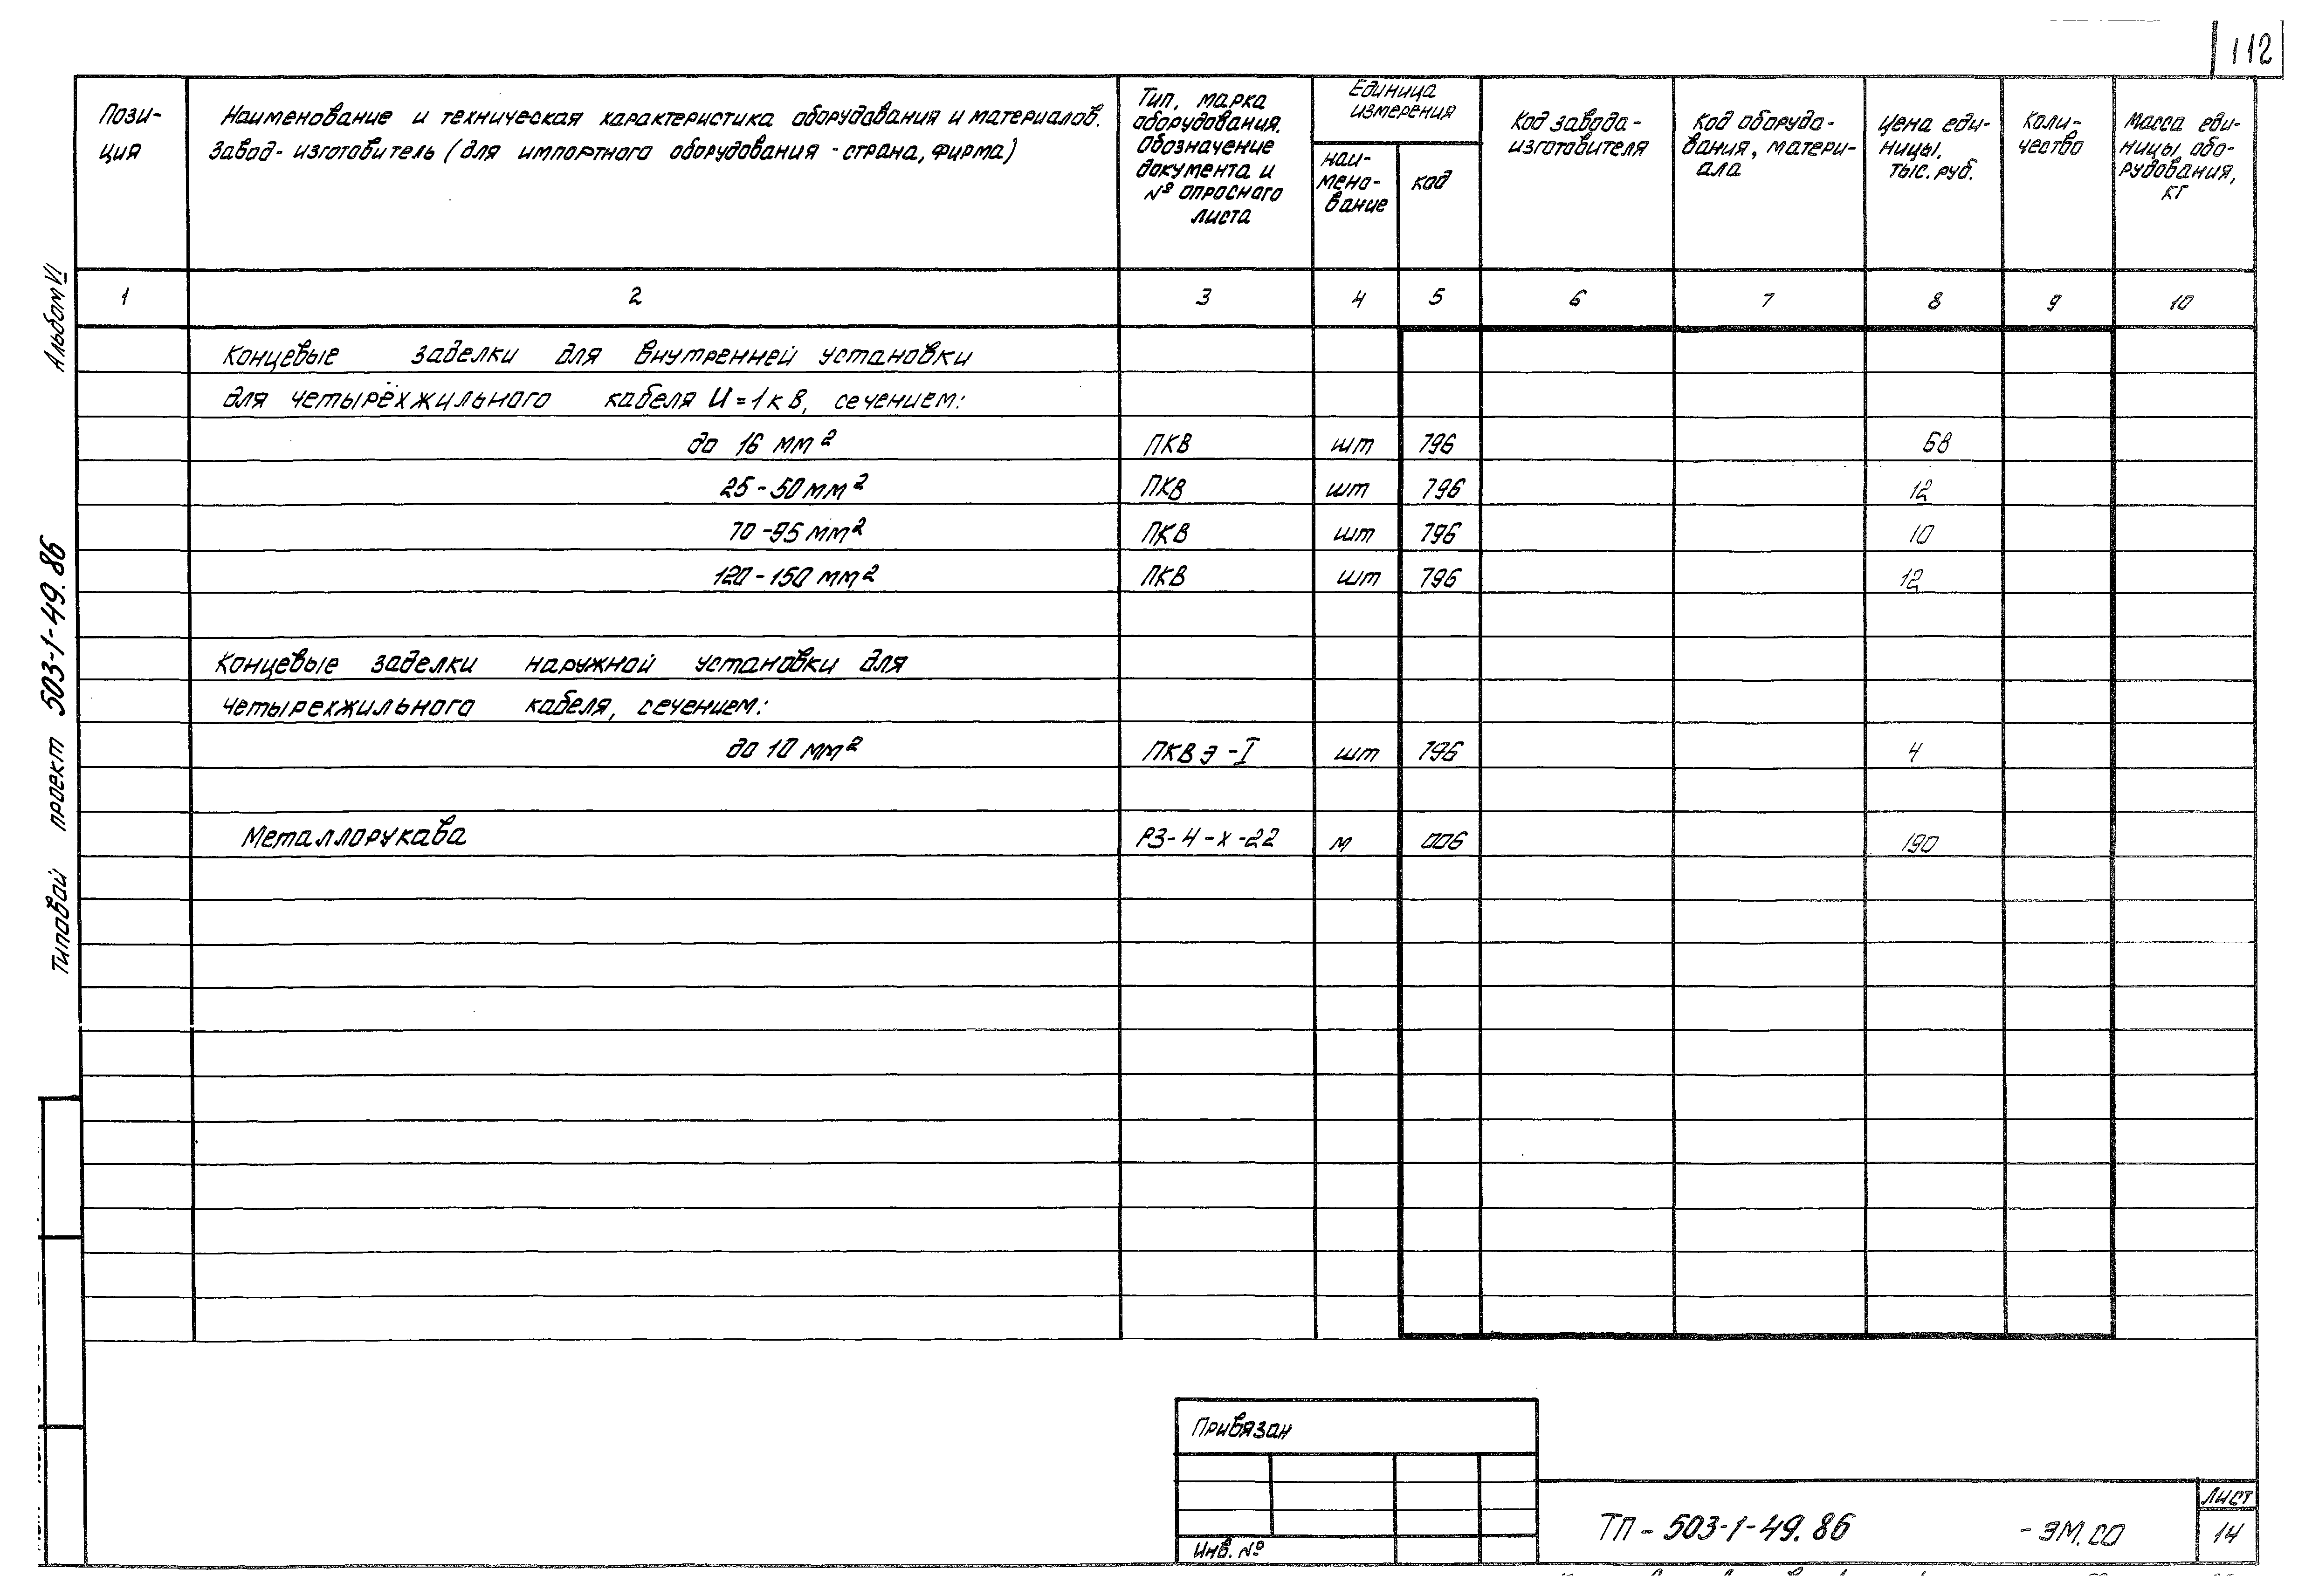 112
Пози-
ция
Наименование и техническая характеристика оборудования и материалов.
Завод-изготовитель (для импортного оборудования - страна, фирма)
Тип, марка
оборудования.
Обозначение
документа и
№ опросного
листа
Единица
измерения
наи-
мено-
вание
код
Код завода-
изготовителя
Код оборудо-
вания, матери-
ала
Цена еди-
ницы,
тыс. руб.
Коли-
чество
Масса еди-
ницы обо-
рудования,
кг
1 2 3 4 5 6 7 8 9 10
Концевые заделки для внутренней установки
для четырёхжильного кабеля U=1кВ, сечением:
до 16 мм² ПКВ шт 796 68
25-50 мм² ПКВ шт 796 12
70-95 мм² ПКВ шт 796 10
120-150 мм² ПКВ шт 796 12
Концевые заделки наружной установки для
четырехжильного кабеля, сечением:
до 10 мм² ПКВэ-I шт 796 4
Металлорукава РЗ-Ч-Х-22 м 006 190
Альбом VI
Типовой проект 503-1-49.86
Привязан
Инв. №
ТП-503-1-49.86 -ЭМ.СО
Лист
14